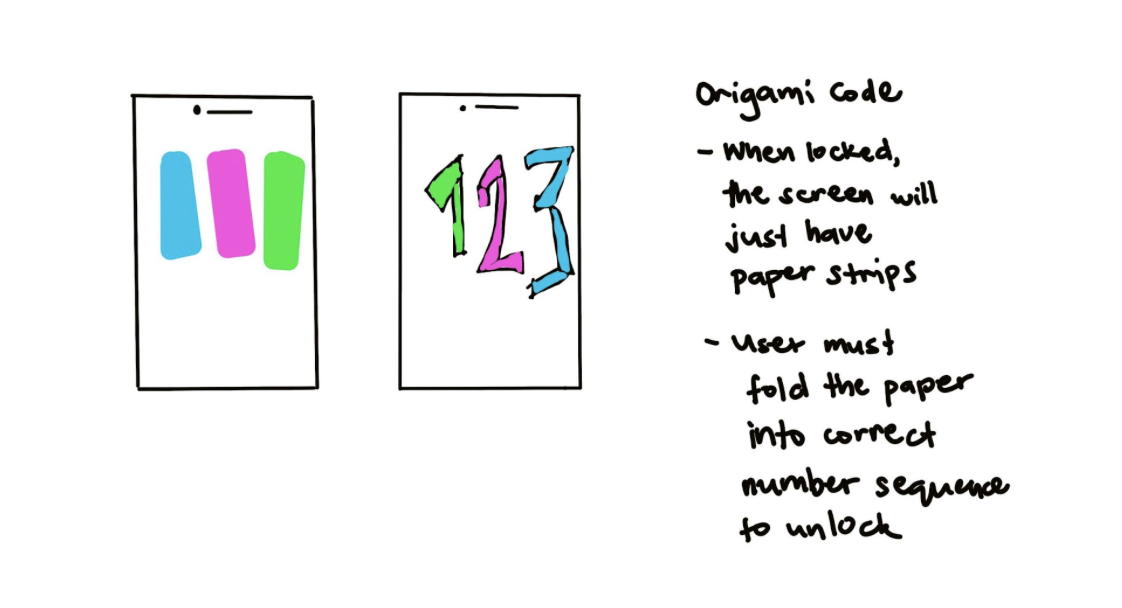 1 2 3
Origami Code
- When locked,
the screen will
just have
paper strips
- User must
fold the paper
into correct
number sequence
to unlock